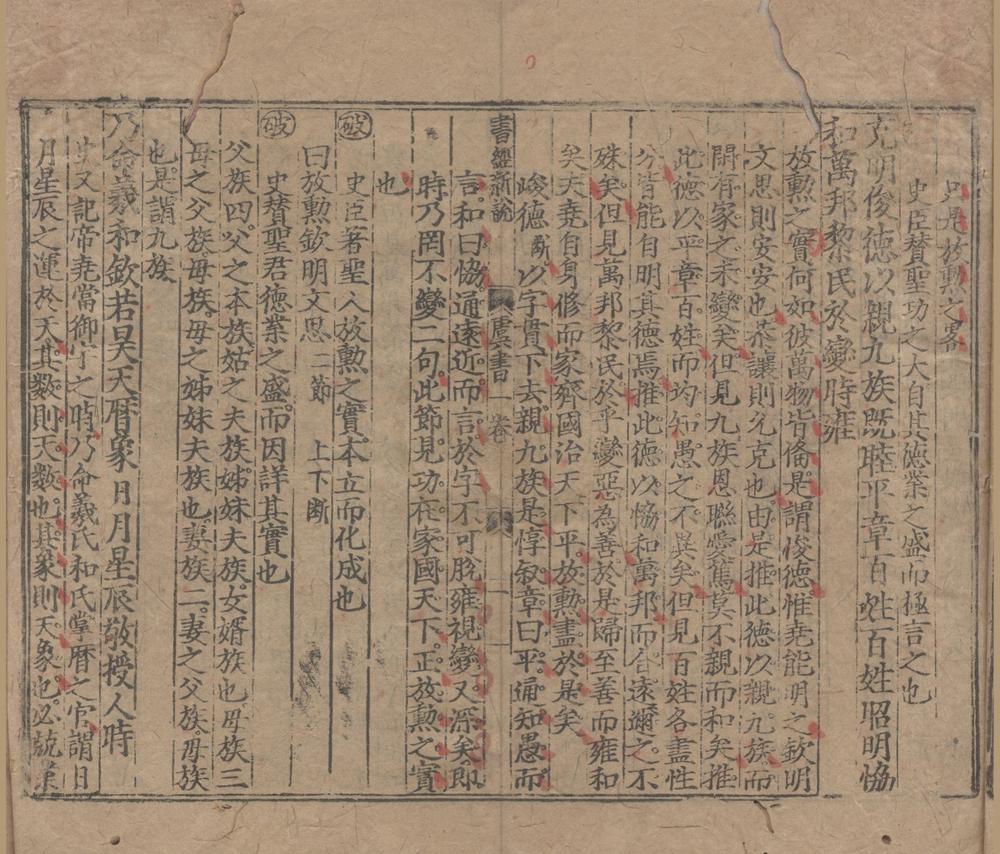 只是放勳之客
史臣賛聖功之大自其德業之盛而極言之也
克明俊德以親九族既睦平章百姓百姓昭明恊
和萬邦黎民於變時雍
放勳之實何如彼萬物皆俻是謂俊德惟堯能明之欽明
文思則安安也恭讓則允克也由是推此德以親九族而
閨有家之未變矣但見九族恩聯愛篤莫不親而和矣推
此德以平章百姓而均知愚之不異矣但見百姓各盡性
分皆能自明其德焉推此德以恊和萬邦而合遠邇之不
殊矣但見萬邦黎民於乎變惡為善於是歸至善而雍和
矣夫堯自身修而家齊國治天下平放勳盡於是矣
峻德斷以字貫下去親九族是惇叙章曰平通知愚而
書經新說 虞書一卷 一
言和曰恊通遠近而言於字不可脫雍視變又深矣即
時乃罔不變二句此節見功在家國天下正放勳之實
也
破 史臣著聖人放勳之實本立而化成也
曰放勳欽明文思二節 上下断
破 史賛聖君德業之盛而因詳其實也
父族四父之本族姑之夫族姊妹夫族女婿族也母族三
母之父族母族母之姊妹夫族也妻族二妻之父族母族
也是謂九族
乃命羲和欽若昊天曆象日月星辰敬授人時
史又記帝堯當御宇之時乃命羲氏和氏掌曆之官謂日
月星辰之運於天其数則天数也其象則天象也必兢業